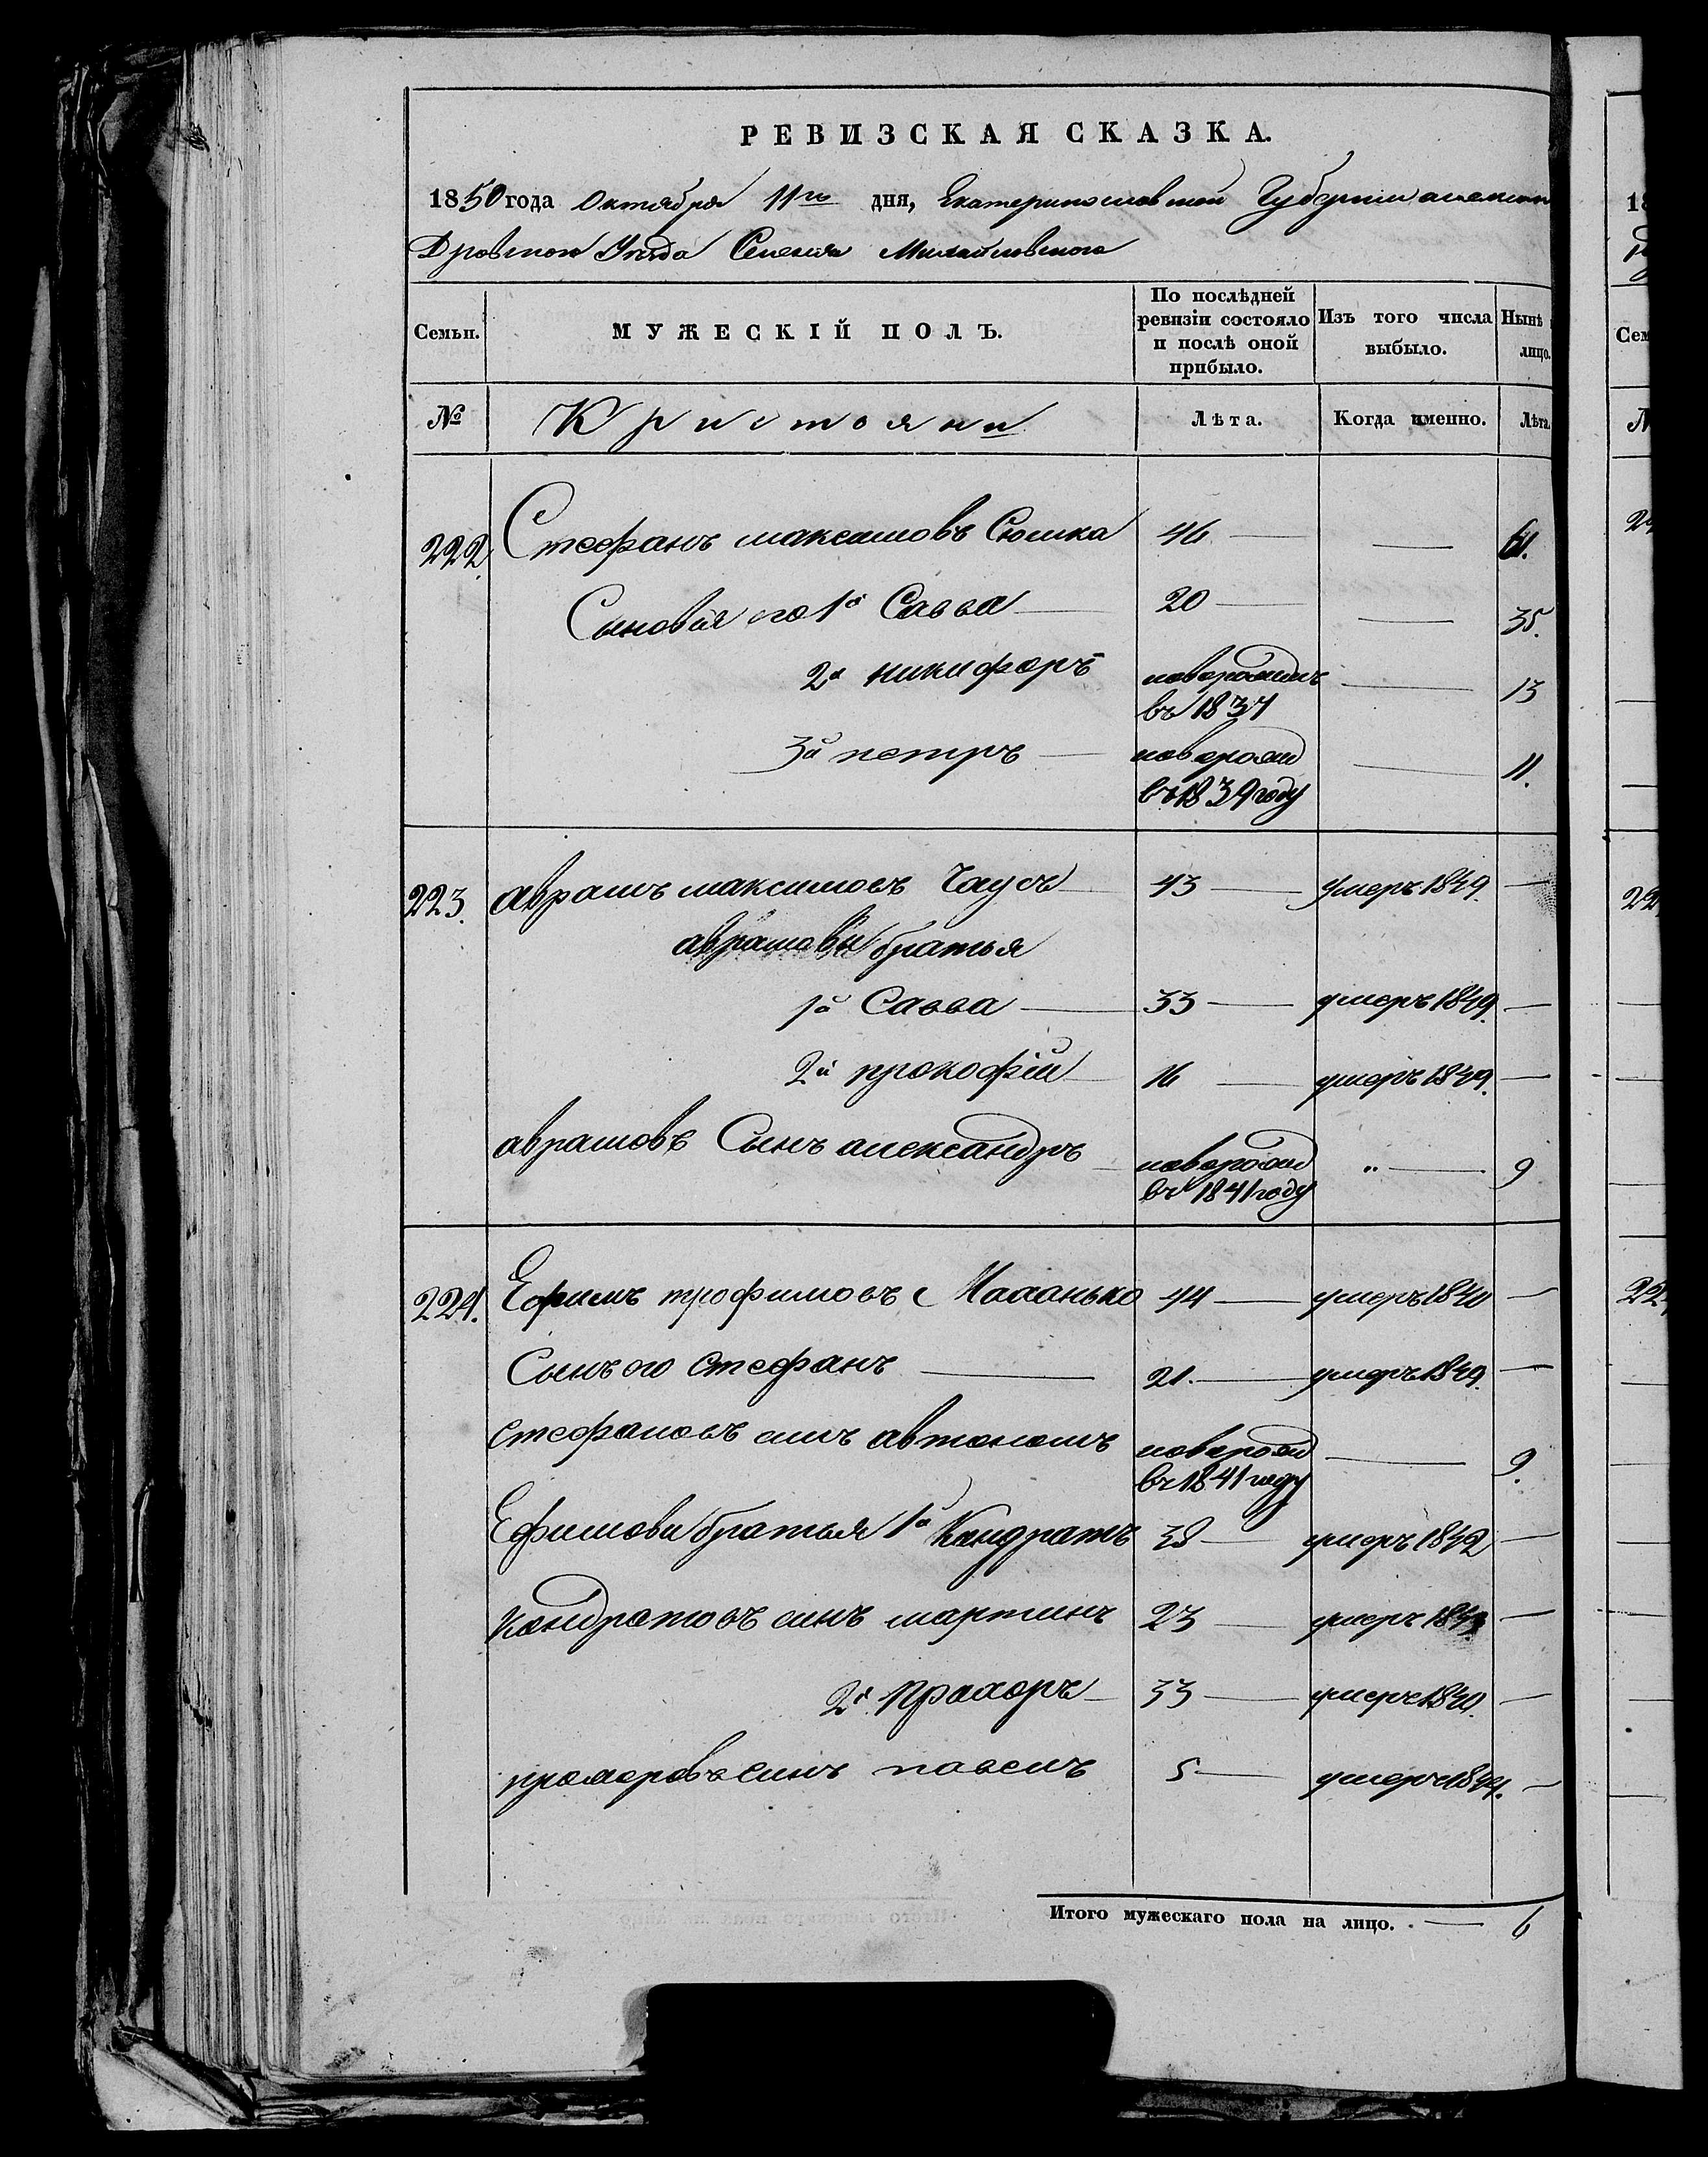 РЕВИЗСКАЯ СКАЗКА.
1850 года Октября 11го дня, Екатеринославской Губернии алексан
Дровского Уезда Селения Михайловского
Семьи. МУЖЕСКІЙ ПОЛЪ. По послѣдней ревизіи состояло и послѣ оной прибыло. Изъ того числа выбыло. Нынѣ лицо.
№ Кристояни Лѣта. Когда именно. Лѣта.
222. Стефанъ максимовъ Сюшка 46 — — 61.
Сыновія го 1й Савва — 20 — — 35.
2й никифоръ новорожденъ въ 1837 — 13
3й петръ — новорожд въ 1839 году — 11.
223. аврамъ максимовъ Чаусъ 43 — умеръ 1849. —
аврамови братья
1й Савва — 33 — умеръ 1849. —
2й прокофій 16 — умеръ 1849. —
аврамовъ Сынъ александръ новорожд въ 1841 году „ — 9
224. Ефимъ трофимовъ Махонько 44 — умеръ 1840 —
Сынъ го Стефанъ — 21. — умеръ 1849. —
стефановъ синъ автономъ новорожд въ 1841 году — 9.
Ефимови братья 1й Кондратъ 38 — умеръ 1842 —
Кондратовъ синъ мартинъ 23 — умеръ 1843. —
2й прохоръ 33 — умеръ 1840. —
прохоровъ синъ павелъ 5 — умеръ 1844. —
Итого мужескаго пола на лицо. — 6